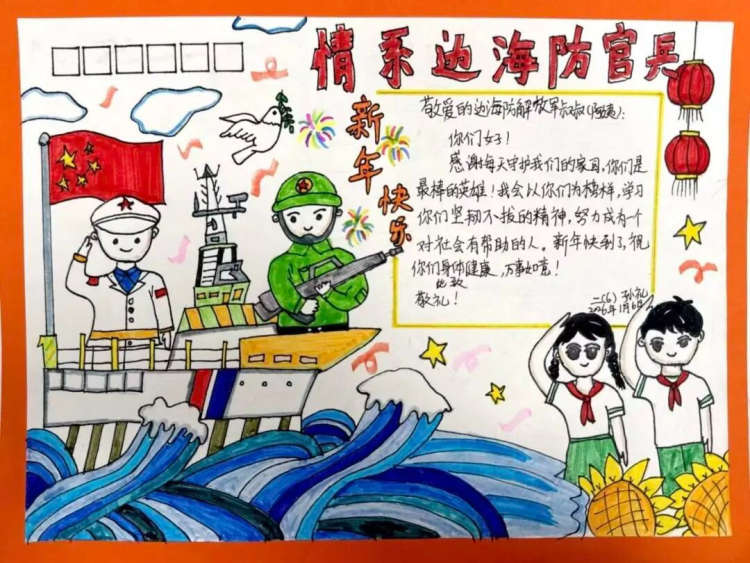 情系边海防官兵
新年快乐
敬爱的边海防解放军叔叔(阿姨):
你们好!
感谢每天守护我们的家园,你们是
最棒的英雄!我会以你们为榜样,学习
你们坚韧不拔的精神,努力成为一个
对社会有帮助的人。新年快到了,祝
你们身体健康,万事如意!
此致
敬礼!
二(6)孙礼
2026年1月6日